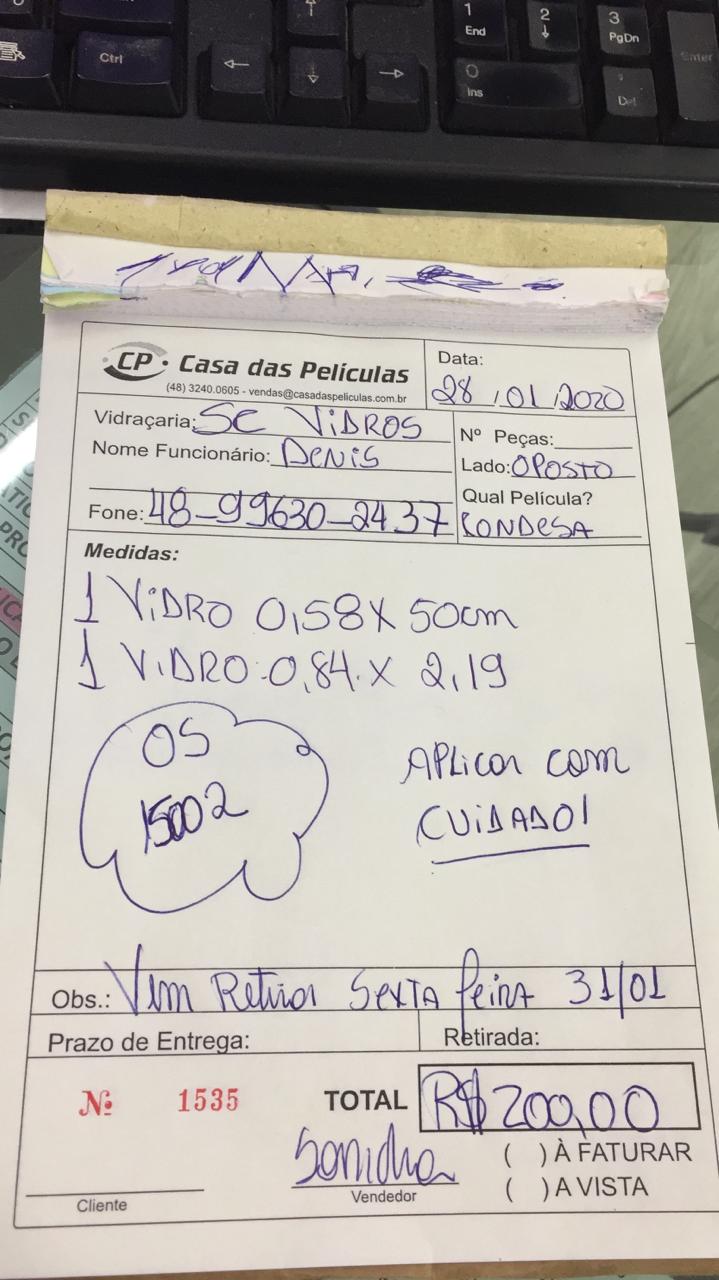 Ctrl
←
↑
↓
→
1
End
2
↓
3
PgDn
Enter
0
Ins
Del
CP Casa das Películas
(48) 3240.0605 - vendas@casadaspeliculas.com.br
Data:
28/01/2020
Vidraçaria: SC VIDROS
Nome Funcionário: DENIS
Fone: 48-99630-2437
Nº Peças:
Lado: OPOSTO
Qual Película?
CONDESA
Medidas:
1 ViDRO 0,58 X 50cm
1 ViDRO 0,84 X 2,19
OS
15002
APLicar com
CUiDADO!
Obs.: Vem Retirar SEXTA feira 31/01
Prazo de Entrega:
Retirada:
Nº 1535
TOTAL R$ 200,00
Vendedor
( ) À FATURAR
( ) A VISTA
Cliente